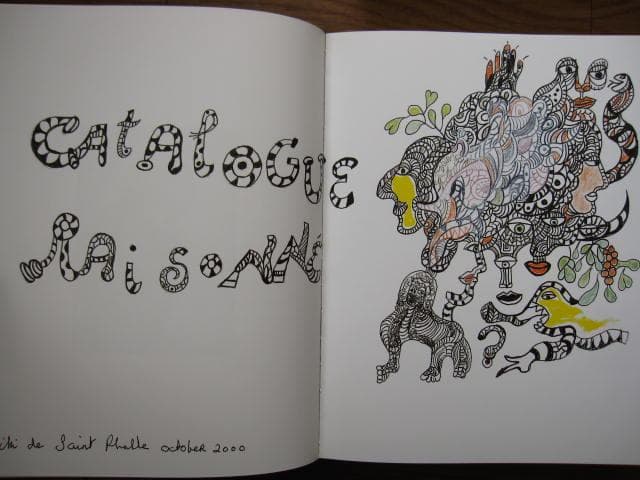 CAtAlOGUE
RAiSONNé
iki de Saint Phalle october 2000
?